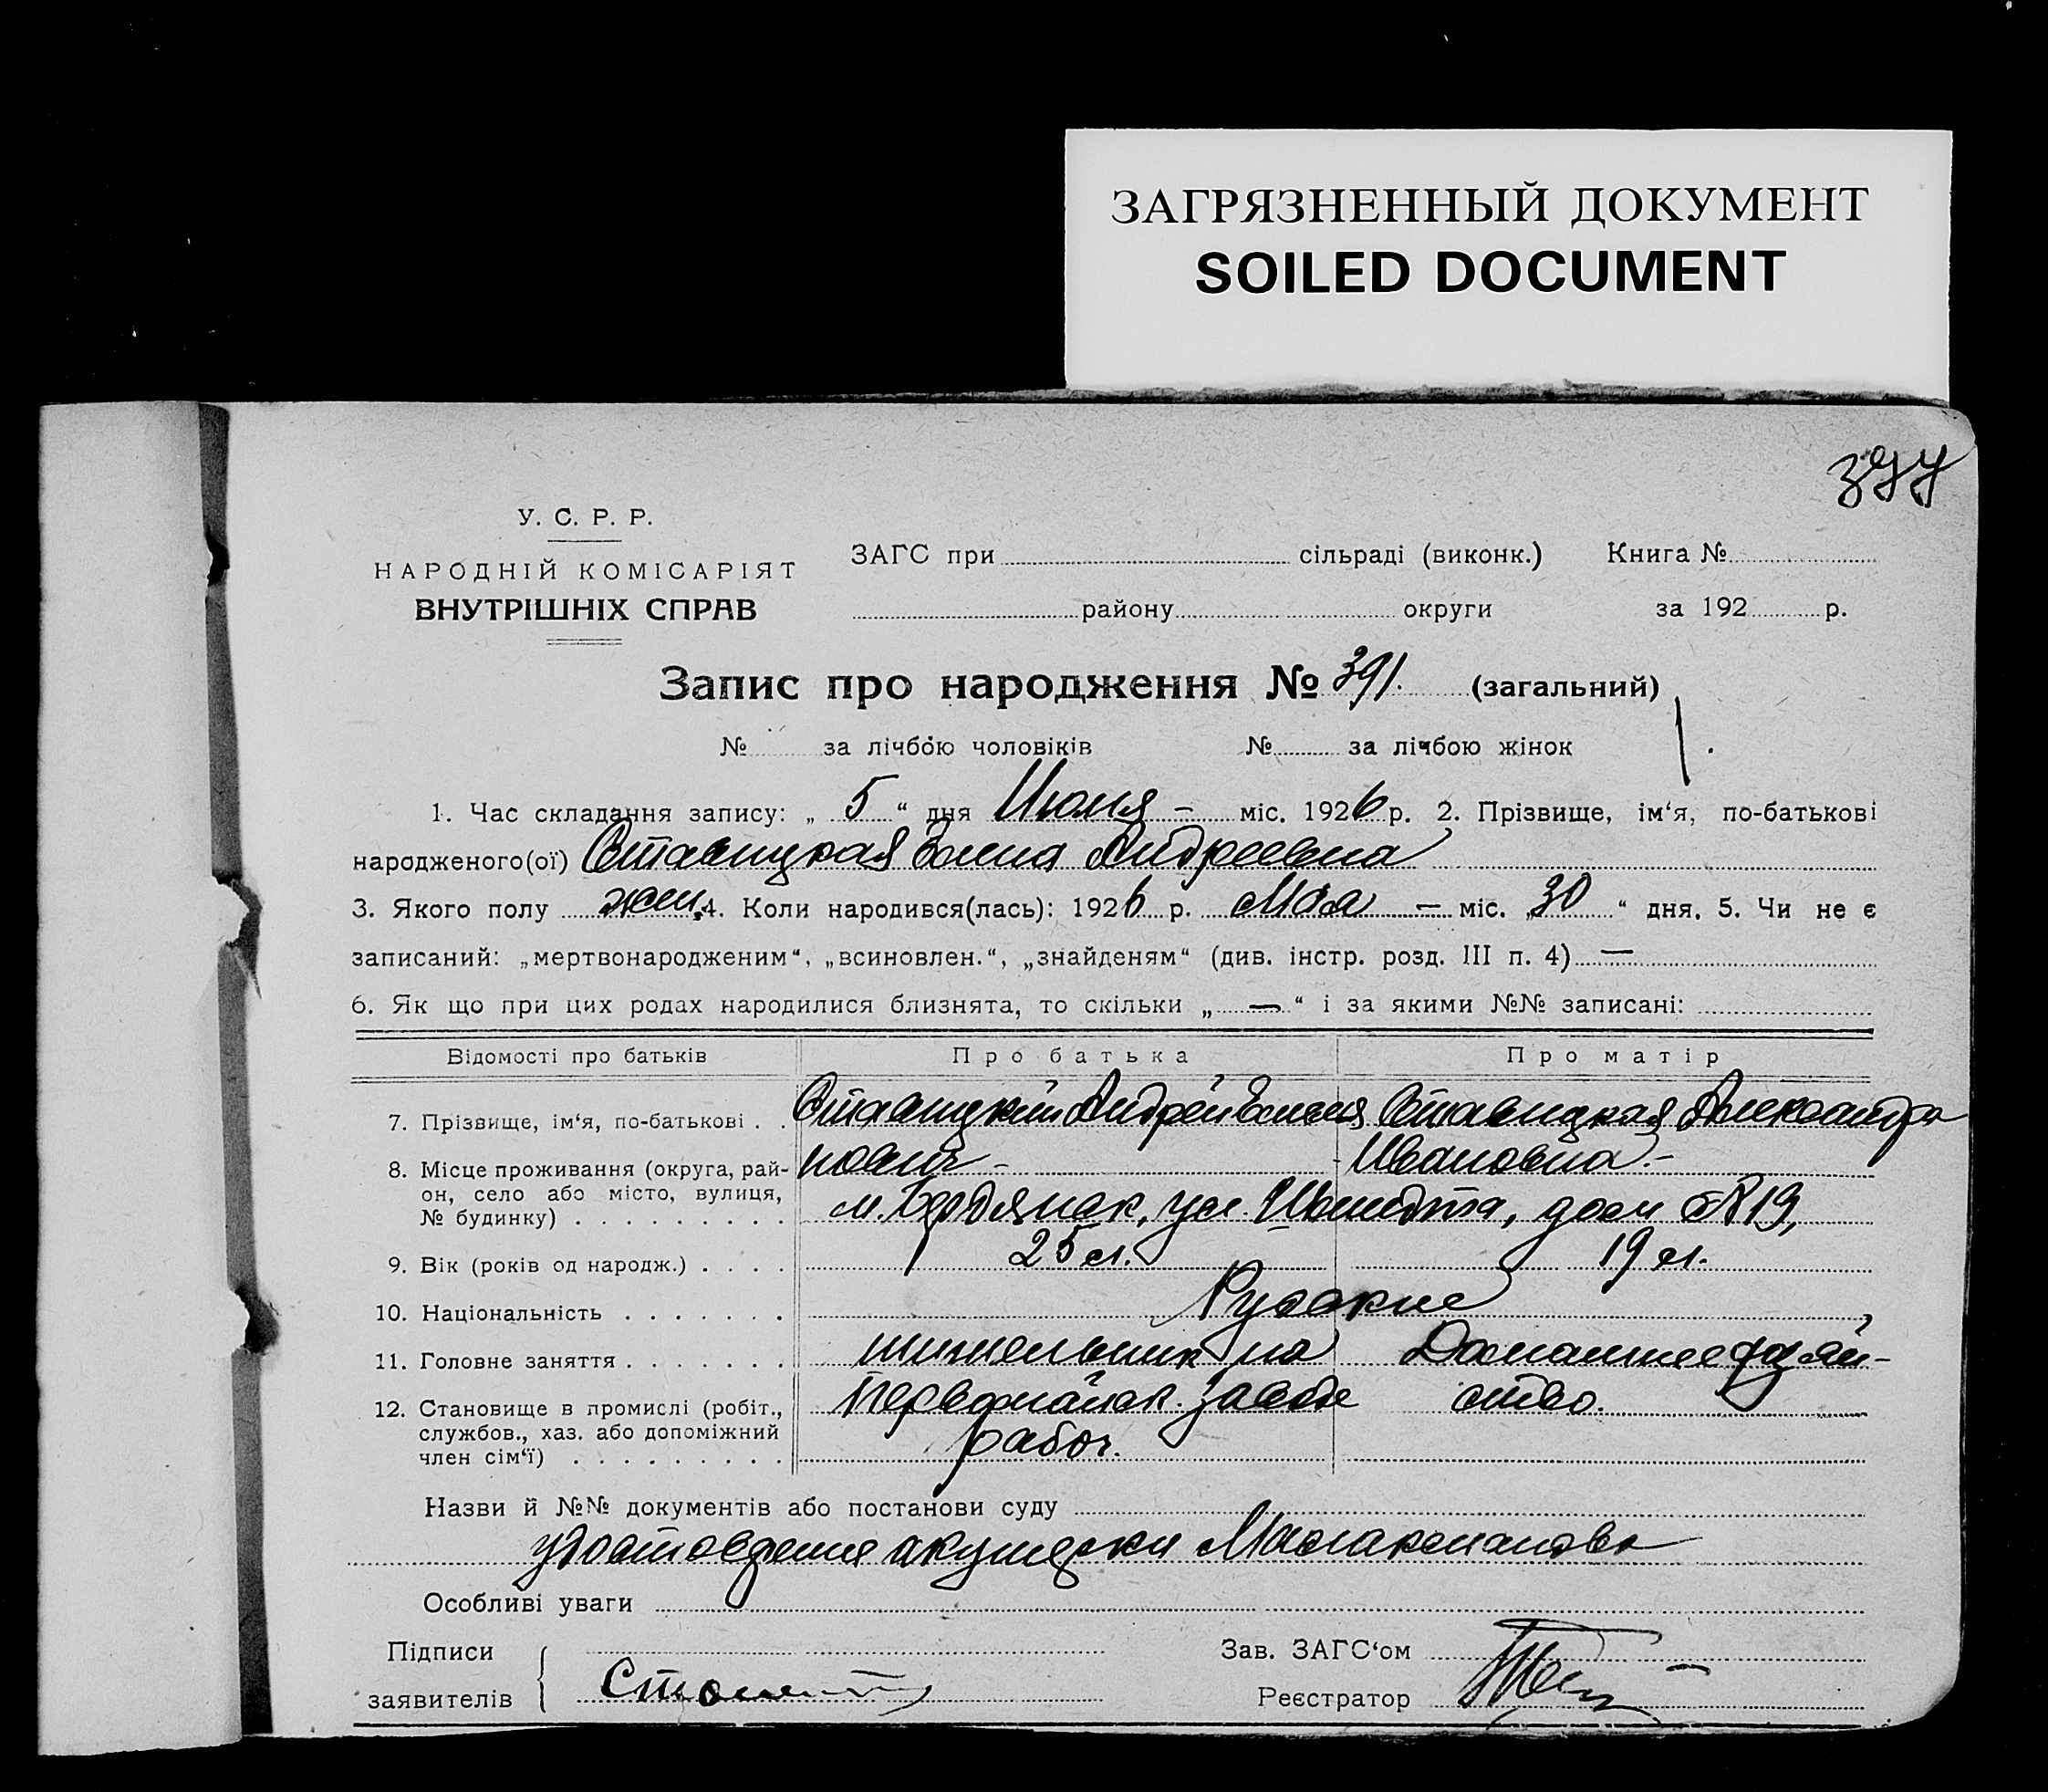 ЗАГРЯЗНЕННЫЙ ДОКУМЕНТ
SOILED DOCUMENT
377
У. С. Р. Р.
НАРОДНІЙ КОМІСАРІЯТ
ВНУТРІШНІХ СПРАВ
ЗАГС при сільраді (виконк.) Книга №
району округи за 192 р.
Запис про народження № 391. (загальний)
№ за лічбою чоловіків № за лічбою жінок
1. Час складання запису: „ 5 “ дня Июня - міс. 1926 р. 2. Прізвище, ім‘я, по-батькові
народженого(ої) Ставицкая Елена Андреевна
3. Якого полу жен. 4. Коли народився(лась): 1926 р. Мая - міс. „30 “ дня. 5. Чи не є
записаний: „мертвонародженим“, „всиновлен.“, „знайденям“ (див. інстр. розд. III п. 4) —
6. Як що при цих родах народилися близнята, то скільки „ — “ і за якими №№ записані:
Відомості про батьків Про батька Про матір
7. Прізвище, ім‘я, по-батькові . . Ставицкий Андрей Ставицкая Александра
Ивановна.-
8. Місце проживання (округа, рай-
он, село або місто, вулиця,
№ будинку) . . . . . . . . . м. Бердянск, ул Шмидта, дом №19,
9. Вік (років од народж.) . . . . 25 л. 19 л.
10. Національність . . . . . . . Русские
11. Головне заняття . . . . . . . на Домашнее хозяй-
Первомайск. заводе ство.
12. Становище в промислі (робіт.,
службов., хаз. або допоміжний
член сім‘ї) . . . . . . . . . рабоч.
Назви й №№ документів або постанови суду
удостоверение акушерки
Особливі уваги
Підписи
заявителів
Зав. ЗАГС‘ом
Реєстратор